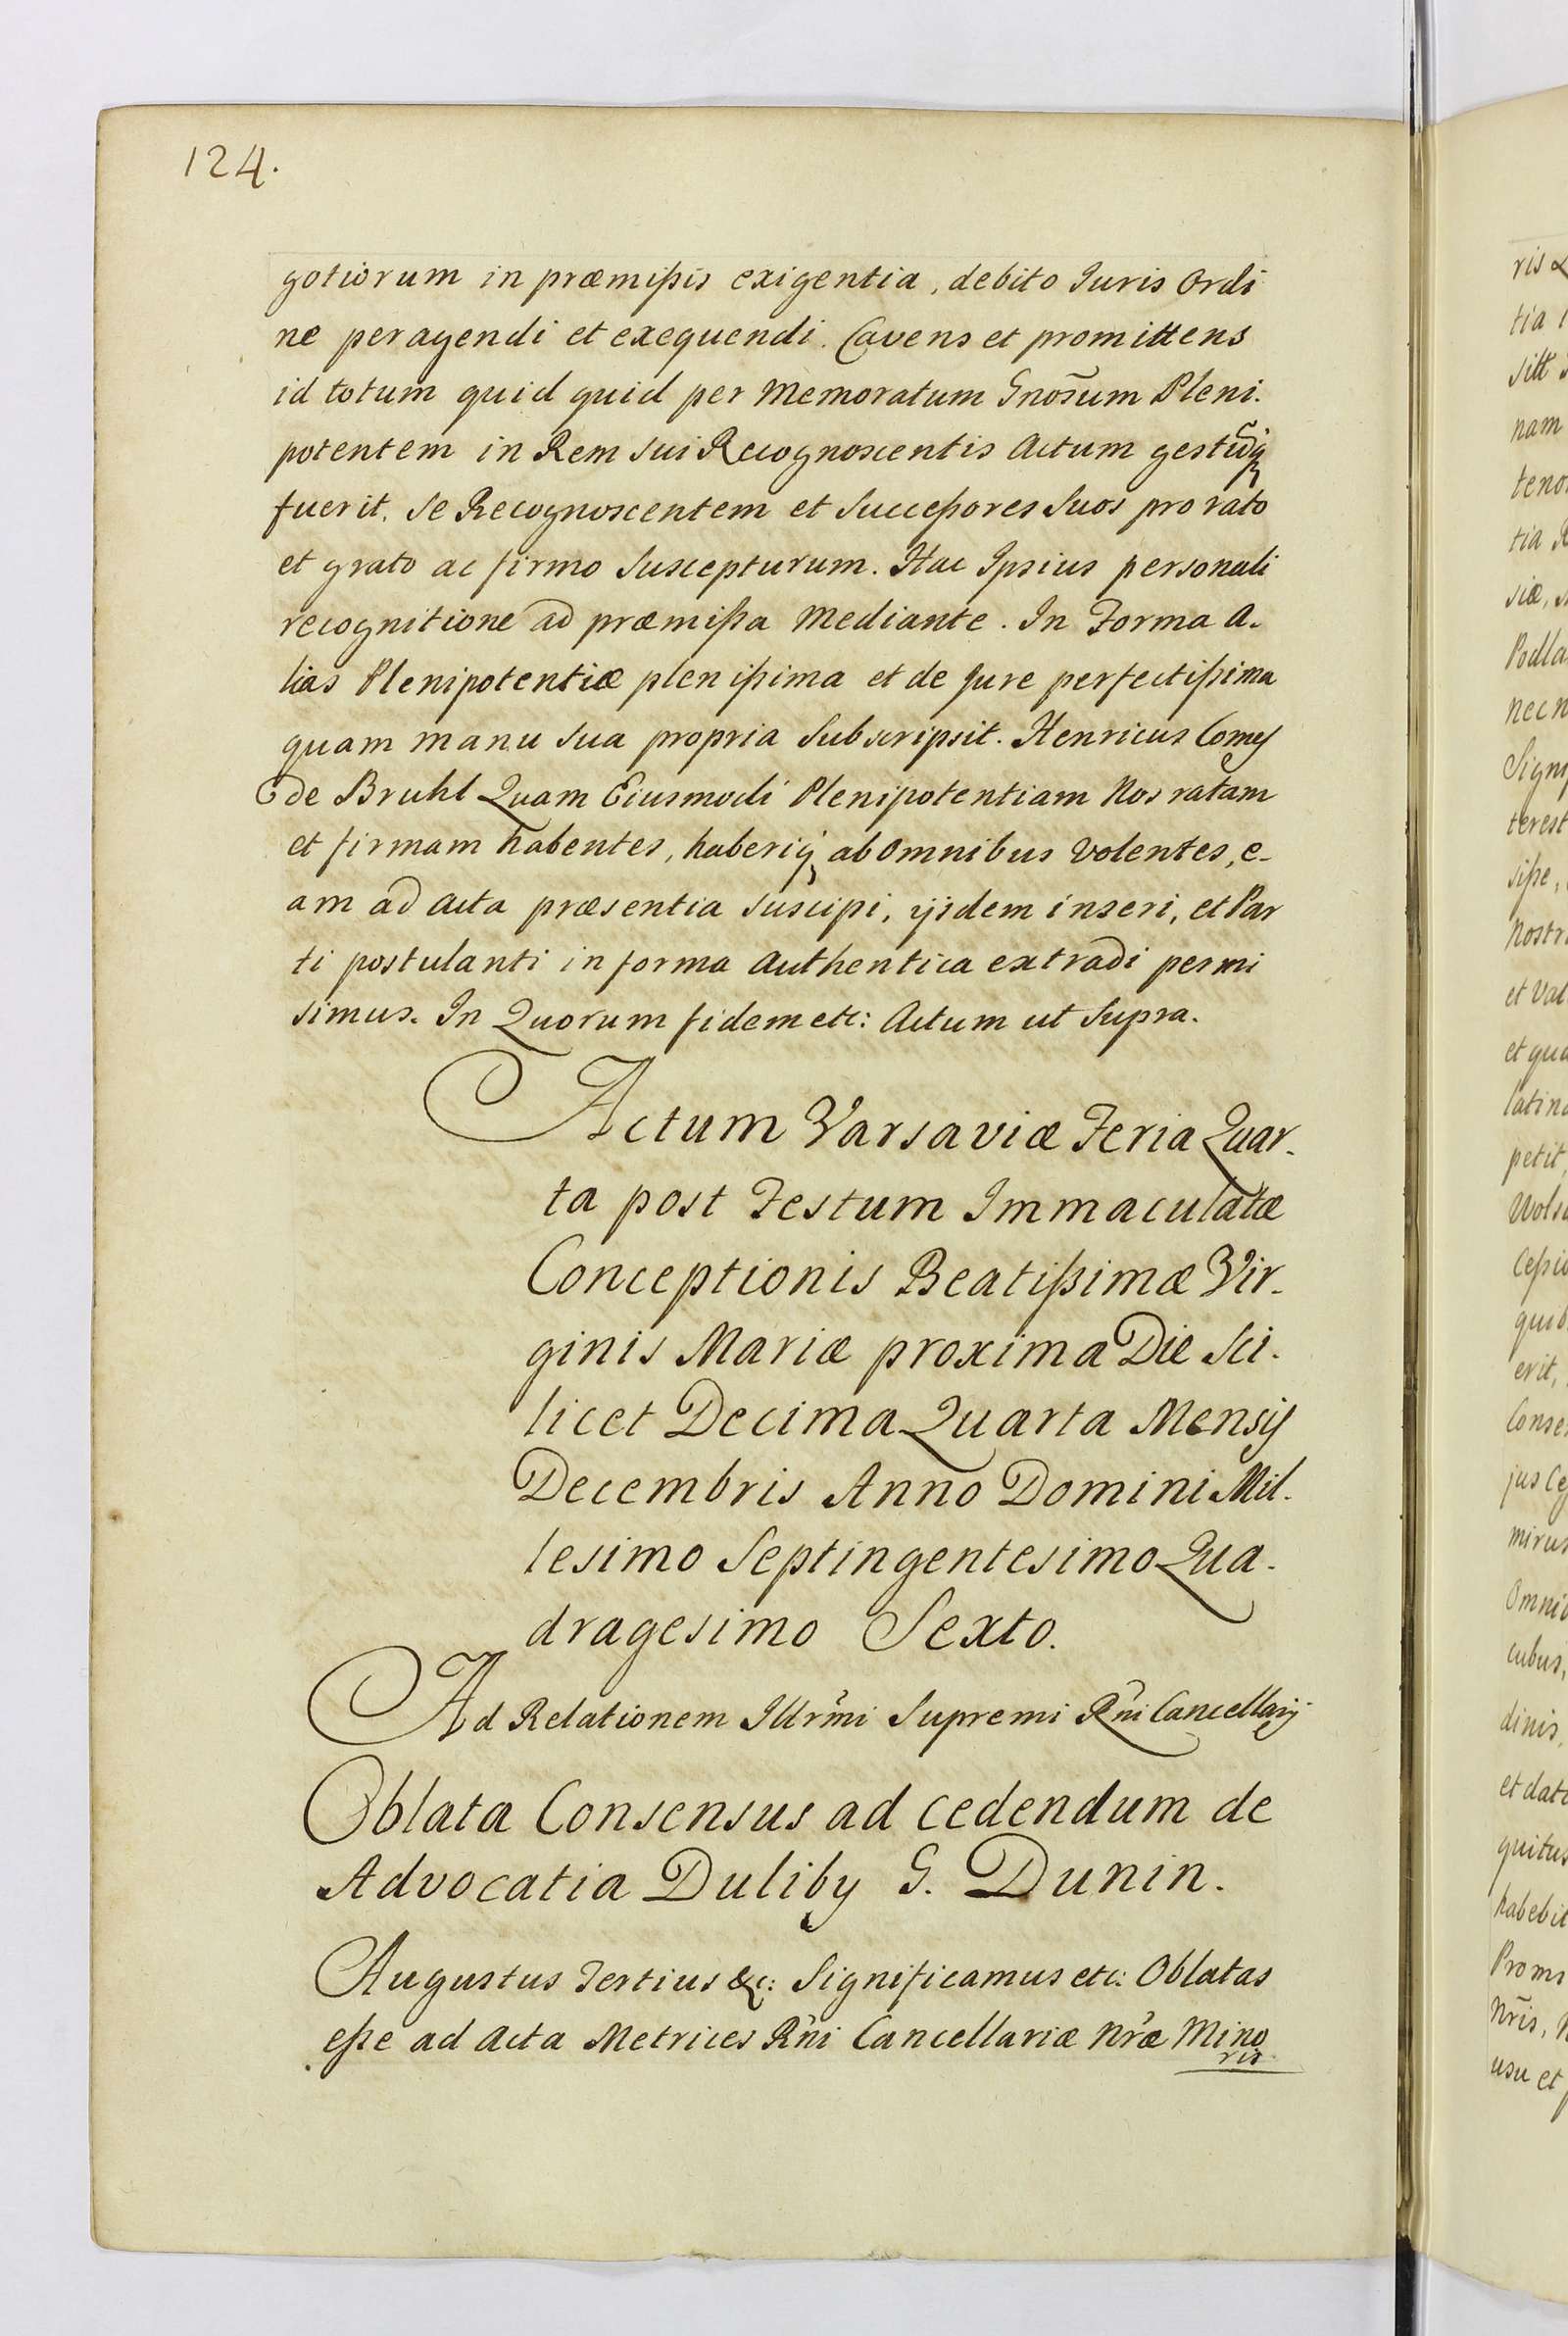 124.
gotiorum in præmißis exigentia, debito Juris Ordi
ne peragendi et exequendi. Cavens et promittens
id totum quid quid per Memoratum Gnōsum Pleni.
potentem in Rem sui Recognoscentis Actum gestūq;
fuerit. Se Recognoscentem et Succeßores Suos pro rato
et grato ac firmo Suscepturum. Hac Ipsius personali
recognitione ad præmißa Mediante. In Forma A-
lias Plenipotentiæ plenißima et de Jure perfectißima
quam manu Sua propria Subscripsit. Henricus Comes
de Bruhl Quam Eiusmodi Plenipotentiam Nos ratam
et firmam habentes, haberiq; ab Omnibus Volentes, e-
am ad Acta præsentia Suscipi, ijsdem inseri, et Par
ti postulanti in forma Authentica extradi permi
simus. In Quorum fidem etc: Actum ut Supra.
Actum Varsaviæ Feria Quar-
ta post Festum Immaculatæ
Conceptionis Beatißimæ Vir-
ginis Mariæ proxima Die Sci-
licet Decima Quarta Mensis
Decembris Anno Domini Mil-
lesimo Septingentesimo Qua-
dragesimo Sexto.
Ad Relationem Illr̃mi Supremi R̃ni Cancellarij
Oblata Consensus ad cedendum de
Advocatia Duliby G. Dunin.
Augustus Tertius &c: Significamus etc: Oblatas
eße ad Acta Metrices R̃ni Cancellariæ Nr̃æ Mino
ris
ris
tia
sitt
nam
teno
tia
siæ,
Podla
nec n
Signi
terest
siße,
Nostr
et Val
et qua
latina
petit,
Wols
Ceßio
quib
erit,
Conse
jus Ce
mirus
Omnib
cubus,
dinis,
et dat
quitus
habebit
Promi
Nr̃is,
usu et